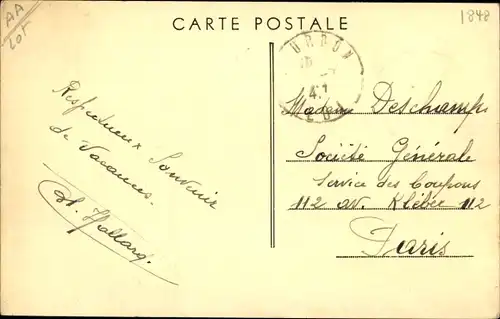 AA
LOT
CARTE POSTALE
1848
Respectueux Souvenir
de Vacances.
Madame Deschamps
Société Générale
Service des Coupons
112 av. Kléber 112
Paris